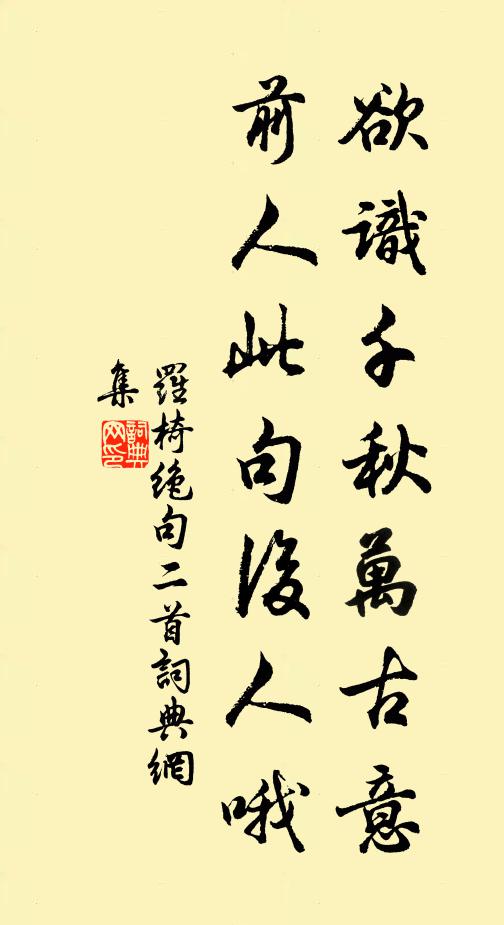 欲識千秋萬古意
前人此句後人哦
羅椅絶句二首詞典網
集
詞典
网印